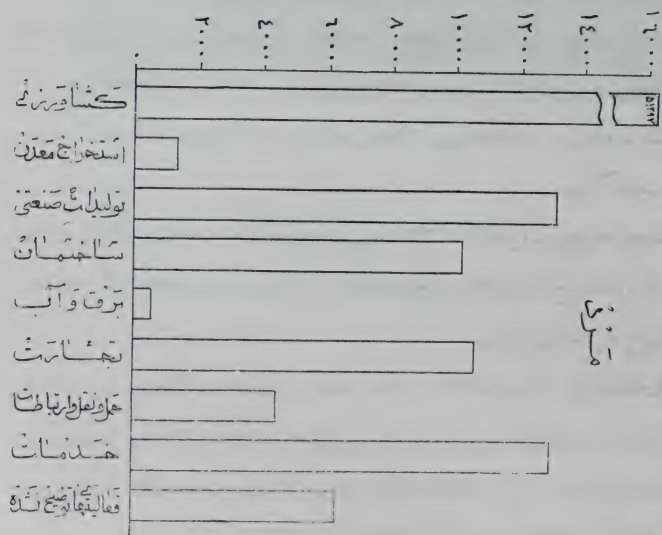 ۰
۲۰۰۰
۴۰۰۰
۶۰۰۰
۸۰۰۰
۱۰۰۰۰
۱۲۰۰۰
۱۴۰۰۰
۱۶۰۰۰
کشاورزی
استخراج معدن
تولیدات صنعتی
ساختمان
برق و آب
تجارت
حمل و نقل و ارتباطات
خدمات
فعالیتهائی توضیح نشده